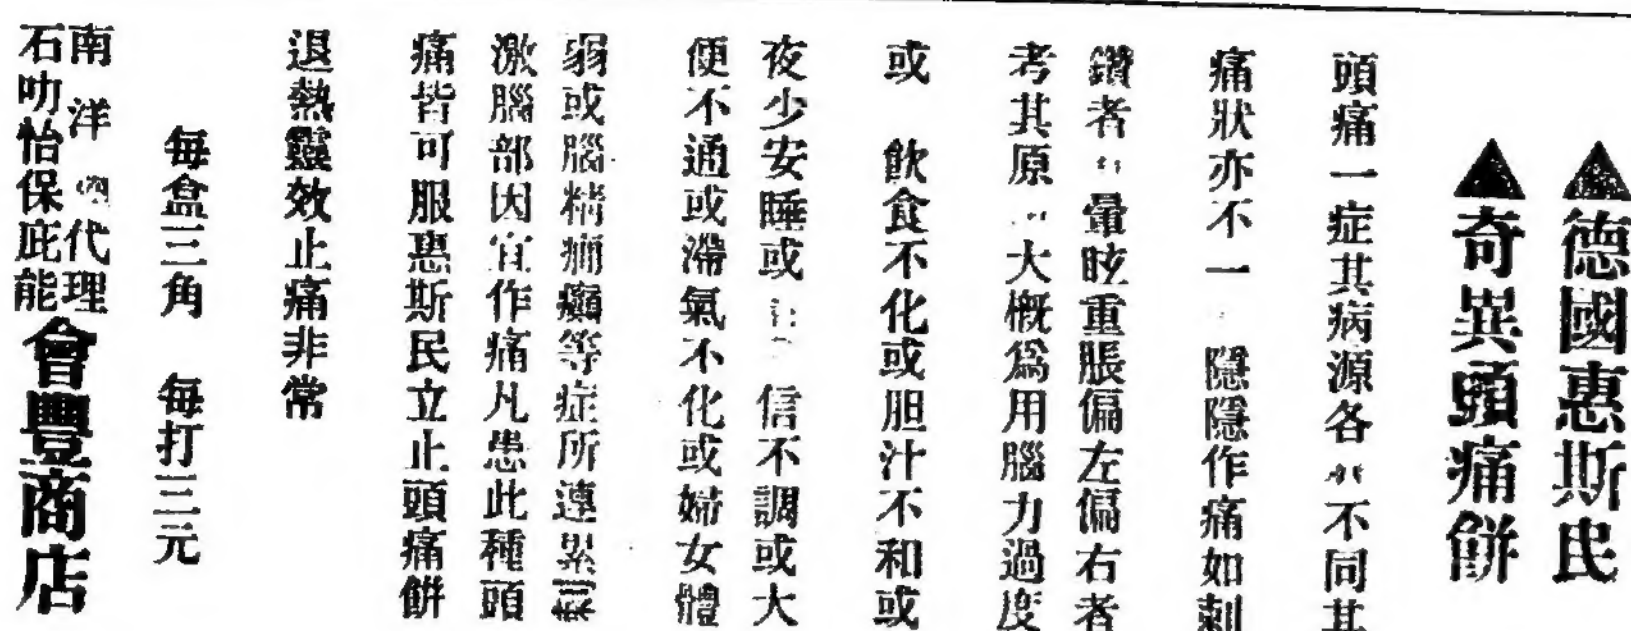 ▲德國惠斯民
▲奇異頭痛餅
頭痛一症其病源各 不同其
痛狀亦不一 隱隱作痛如刺
鑽者 暈眩重脹偏左偏右者
考其原 大概爲用腦力過度
或 飲食不化或胆汁不和或
夜少安睡或 信不調或大
便不通或滯氣不化或婦女體
弱或腦精痛癲等症所連累
激腦部因 作痛凡患此種頭
痛皆可服惠斯民立止頭痛餅
退熱靈效止痛非常
每盒三角 每打三元
南洋 代理
石叻怡保庇能
會豐商店